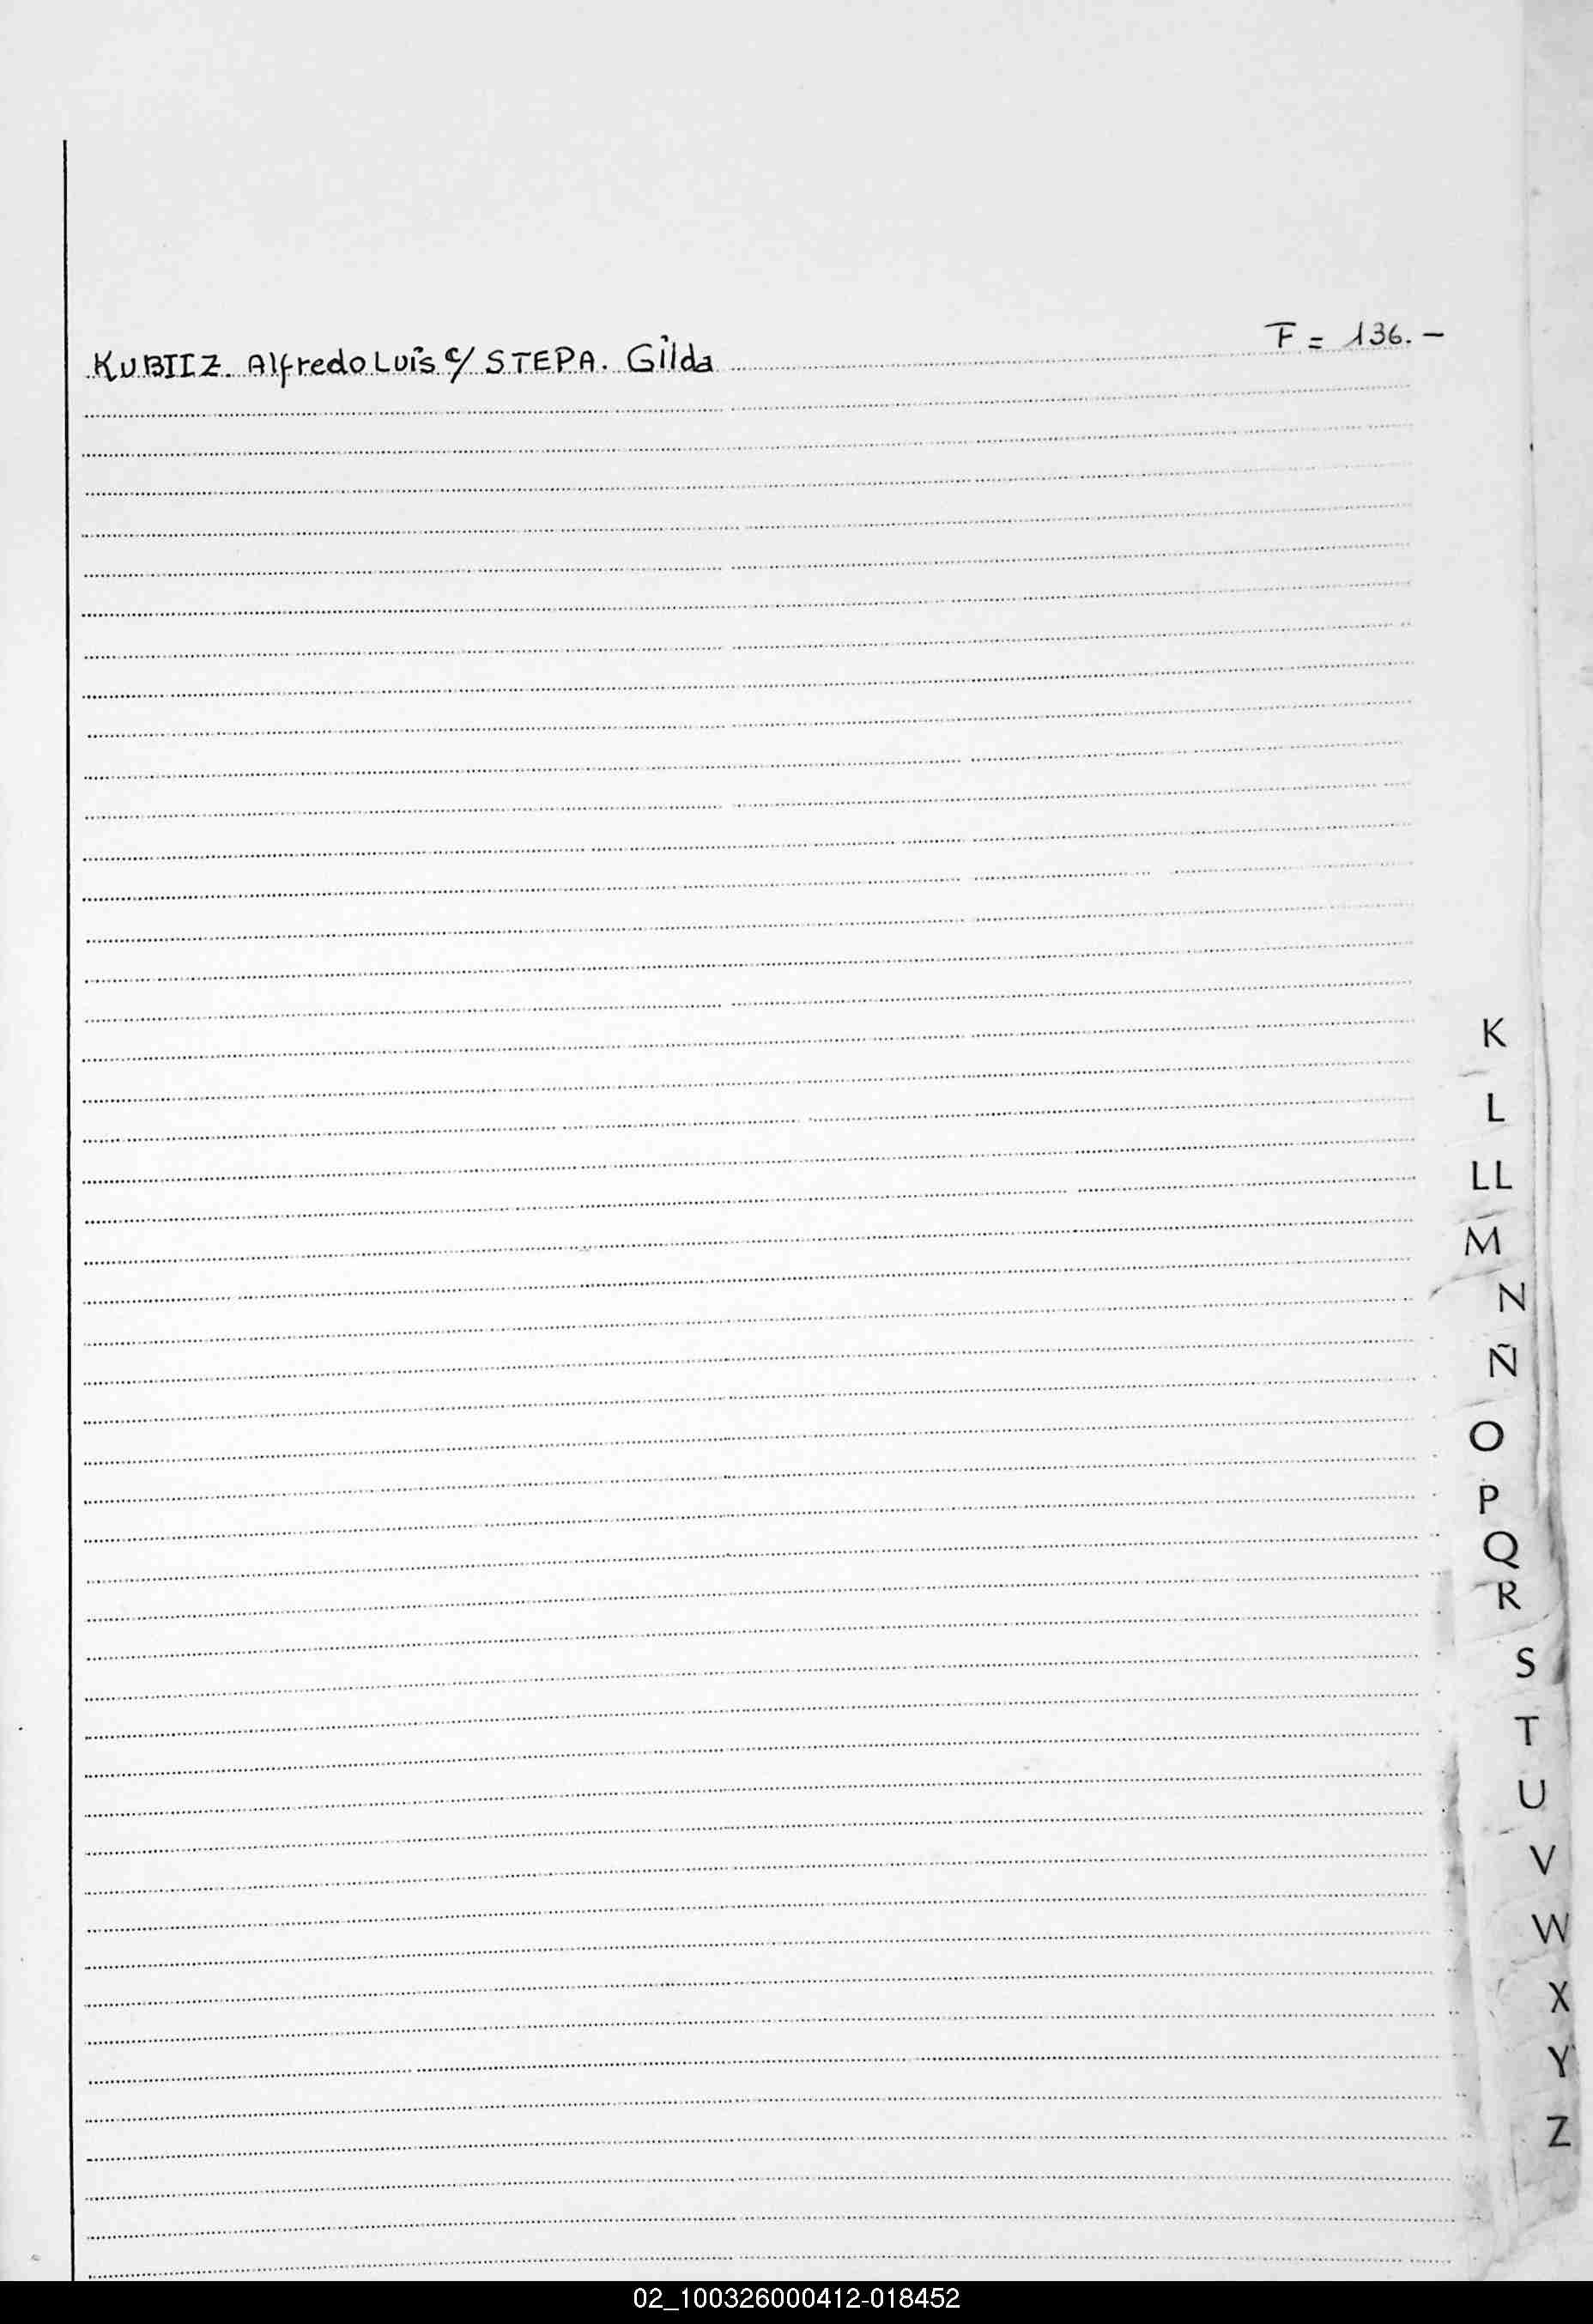 KUBIIZ. Alfredo Luis c/ STEPA. Gilda F = 136. -
K
L
LL
M
N
Ñ
O
P
Q
R
S
T
U
V
W
X
Y
Z
02_100326000412-018452